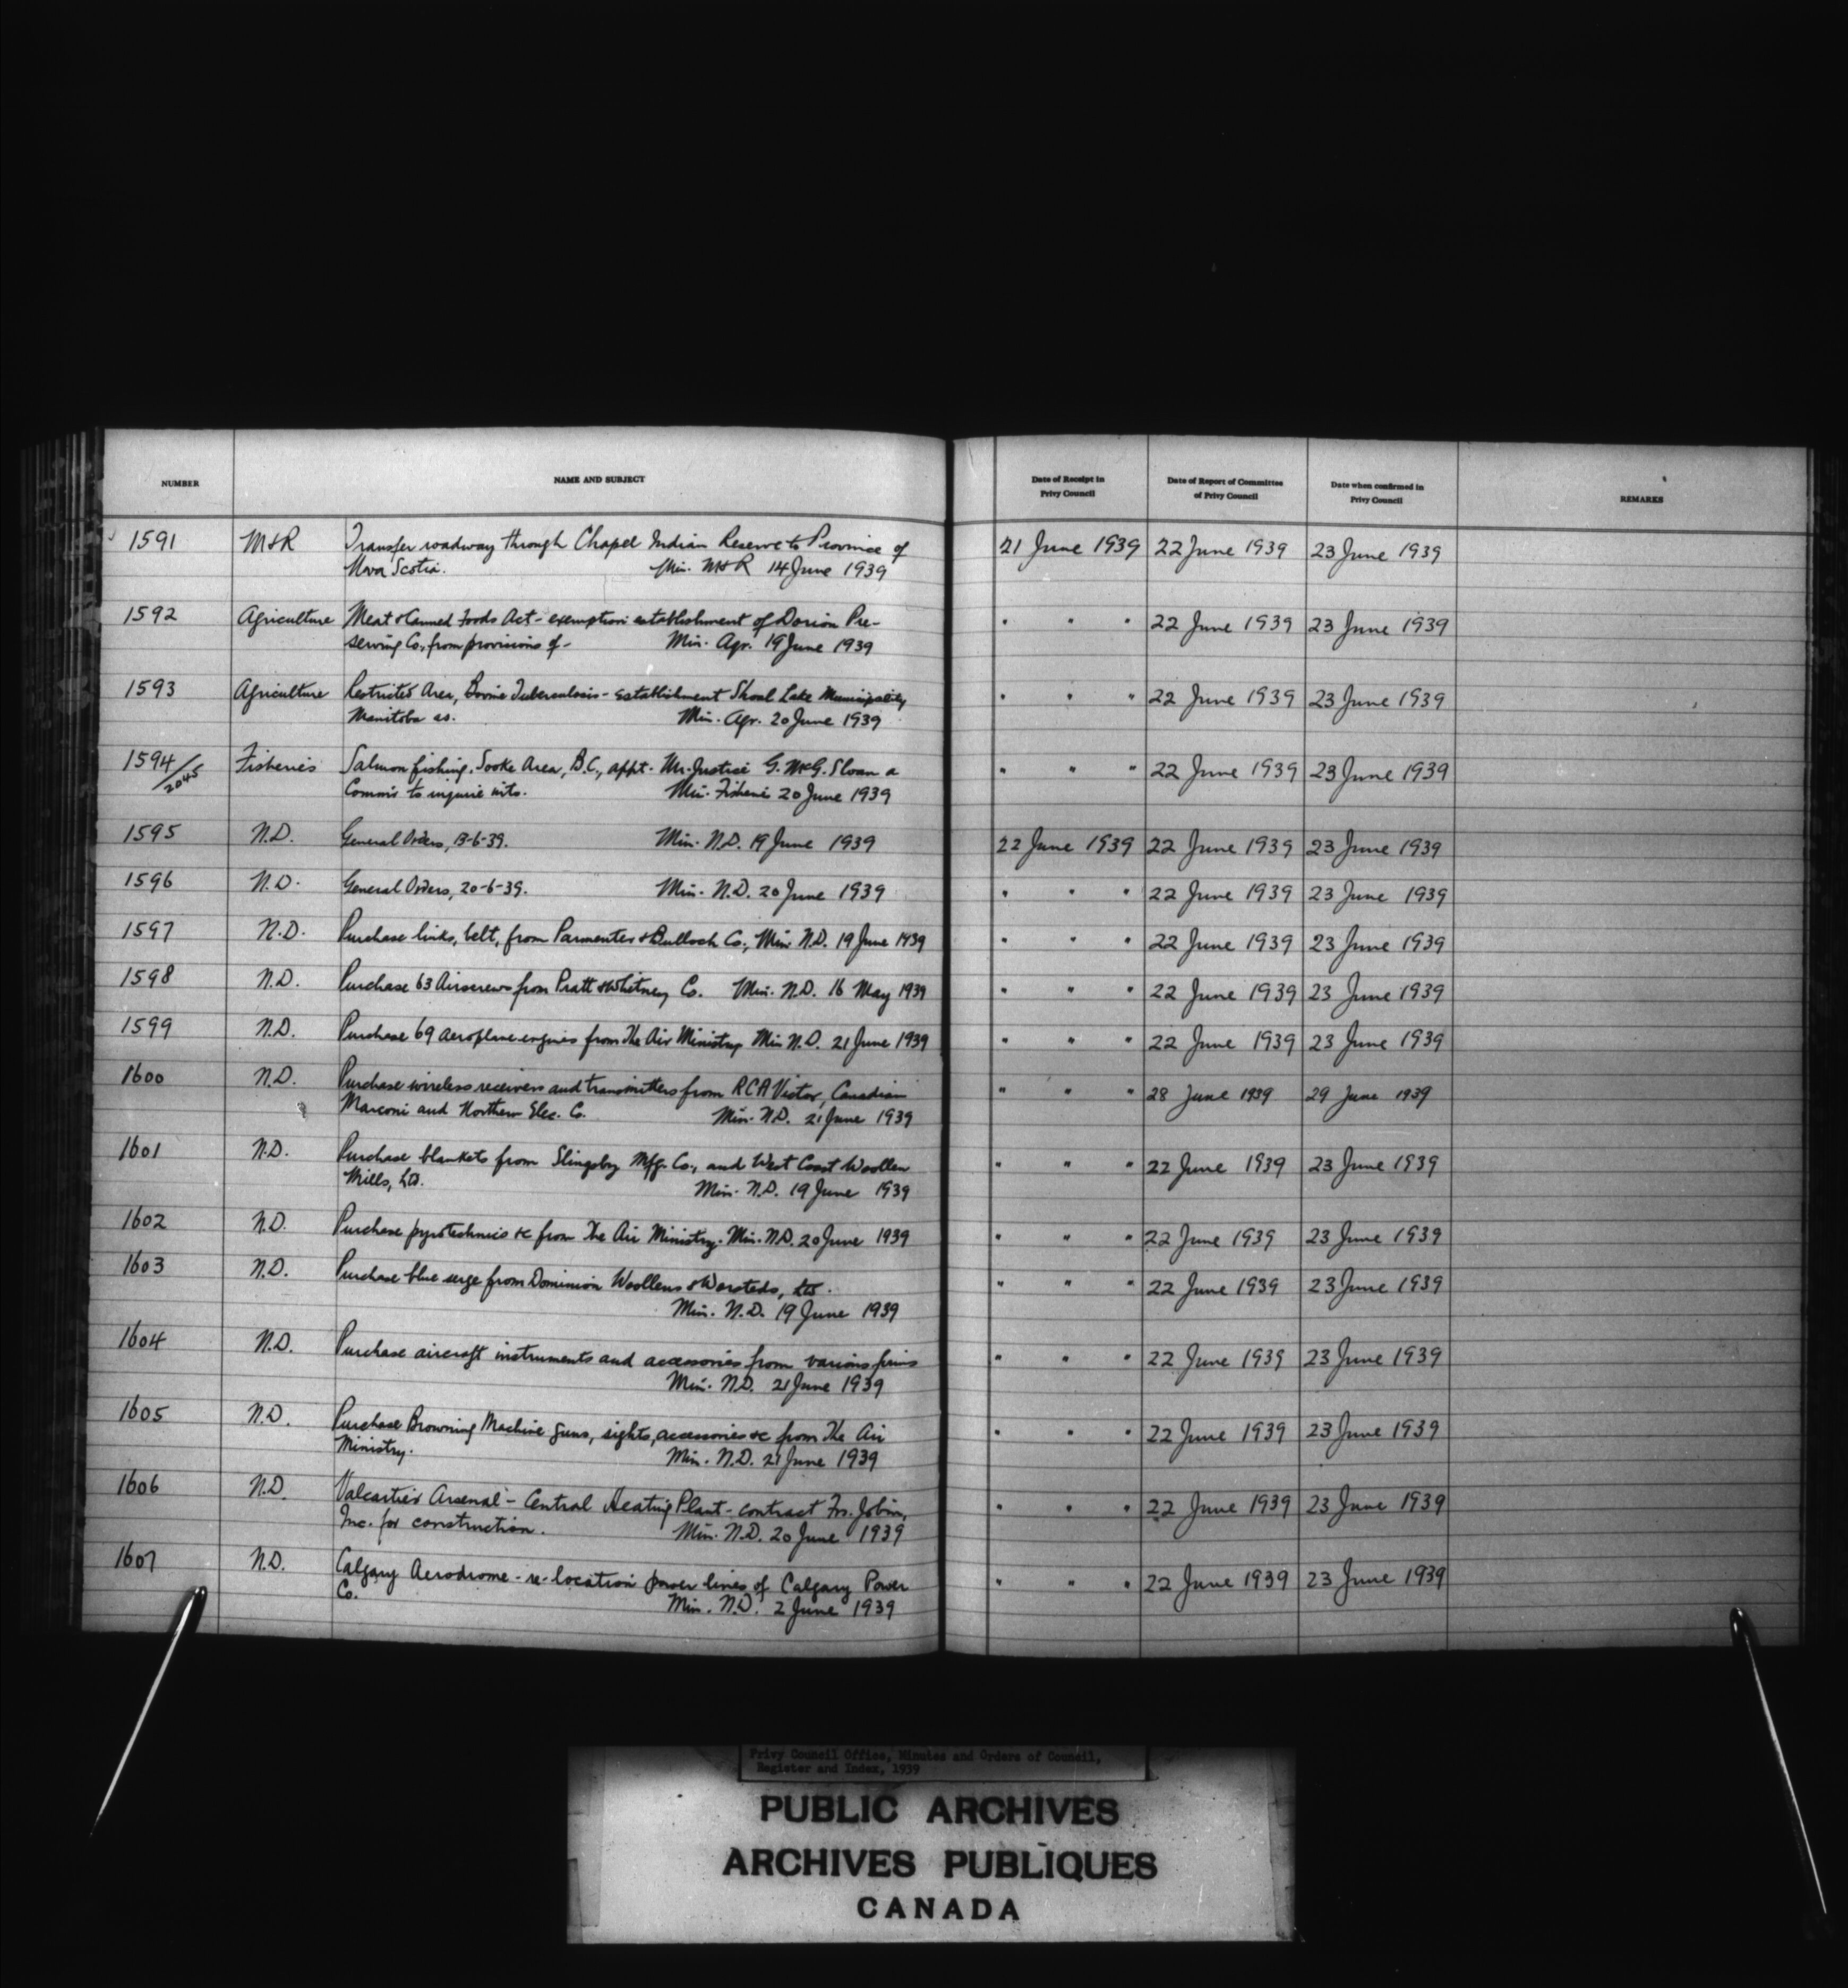 NUMBER NAME AND SUBJECT Date of Receipt in Privy Council Date of Report of Committee of Privy Council Date when confirmed in Privy Council REMARKS
1591 M&R Transfer roadway through Chapel Indian Reserve to Province of 21 June 1939 22 June 1939 23 June 1939
Nova Scotia. Min. M&R 14 June 1939
1592 Agriculture Meat & Canned Foods Act - exemption establishment of Dorion Pre- " " " 22 June 1939 23 June 1939
serving Co., from provisions of - Min. Agr. 19 June 1939
1593 Agriculture Restricted Area, Bovine Tuberculosis - establishment Shoal Lake Municipality " " " 22 June 1939 23 June 1939
Manitoba as. Min. Agr. 20 June 1939
1594/2045 Fisheries Salmon fishing, Sooke Area, B.C., appt. Mr. Justice G. McG. Sloan a " " " 22 June 1939 23 June 1939
Commr to inquire into. Min. Fisheries 20 June 1939
1595 N.D. General Orders, 13-6-39. Min. N.D. 19 June 1939 22 June 1939 22 June 1939 23 June 1939
1596 N.D. General Orders, 20-6-39. Min. N.D. 20 June 1939 " " " 22 June 1939 23 June 1939
1597 N.D. Purchase links, belt, from Parmenter & Bulloch Co., Min. N.D. 19 June 1939 " " " 22 June 1939 23 June 1939
1598 N.D. Purchase 63 Airscrews from Pratt & Whitney Co. Min. N.D. 16 May 1939 " " " 22 June 1939 23 June 1939
1599 N.D. Purchase 69 aeroplane engines from The Air Ministry Min N.D. 21 June 1939 " " " 22 June 1939 23 June 1939
1600 N.D. Purchase wireless receivers and transmitters from RCA Victor, Canadian " " " 28 June 1939 29 June 1939
Marconi and Northern Elec. Co. Min. N.D. 21 June 1939
1601 N.D. Purchase blankets from Slingsby Mfg. Co., and West Coast Woollen " " " 22 June 1939 23 June 1939
Mills, Ltd. Min. N.D. 19 June 1939
1602 N.D. Purchase pyrotechnics &c from The Air Ministry. Min. N.D. 20 June 1939 " " " 22 June 1939 23 June 1939
1603 N.D. Purchase blue serge from Dominion Woollens & Worsteds, Ltd. " " " 22 June 1939 23 June 1939
Min. N.D. 19 June 1939
1604 N.D. Purchase aircraft instruments and accessories from various firms " " " 22 June 1939 23 June 1939
Min. N.D. 21 June 1939
1605 N.D. Purchase Browning Machine guns, sights, accessories &c from The Air " " " 22 June 1939 23 June 1939
Ministry. Min. N.D. 21 June 1939
1606 N.D. Valcartier Arsenal - Central Heating Plant - contract Frs. Jobin, " " " 22 June 1939 23 June 1939
Inc. for construction. Min. N.D. 20 June 1939
1607 N.D. Calgary Aerodrome - re-location power lines of Calgary Power " " " 22 June 1939 23 June 1939
Co. Min. N.D. 2 June 1939
Privy Council Office, Minutes and Orders of Council,
Register and Index, 1939
PUBLIC ARCHIVES
ARCHIVES PUBLIQUES
CANADA